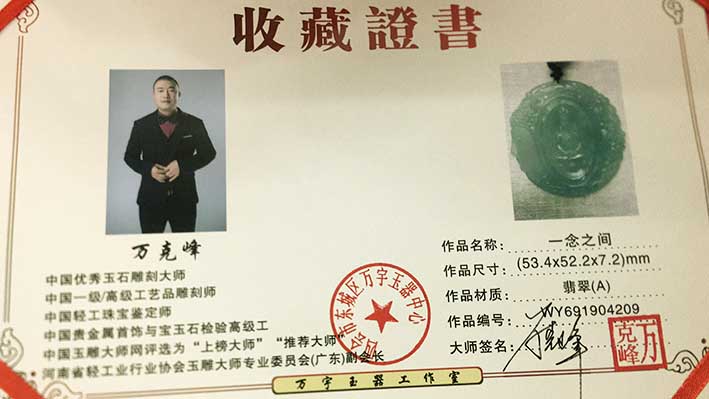 收藏證書
万克峰
中国优秀玉石雕刻大师
中国一级/高级工艺品雕刻师
中国轻工珠宝鉴定师
中国贵金属首饰与宝玉石检验高级工
中国玉雕大师网评选为“上榜大师”“推荐大师”
河南省轻工业行业协会玉雕大师专业委员会(广东)副会长
作品名称: 一念之间
作品尺寸: (53.4x52.2x7.2)mm
作品材质: 翡翠(A)
作品编号: WY691904209
大师签名:
万克峰
市东城区万宇玉器中心
万宇玉器工作室